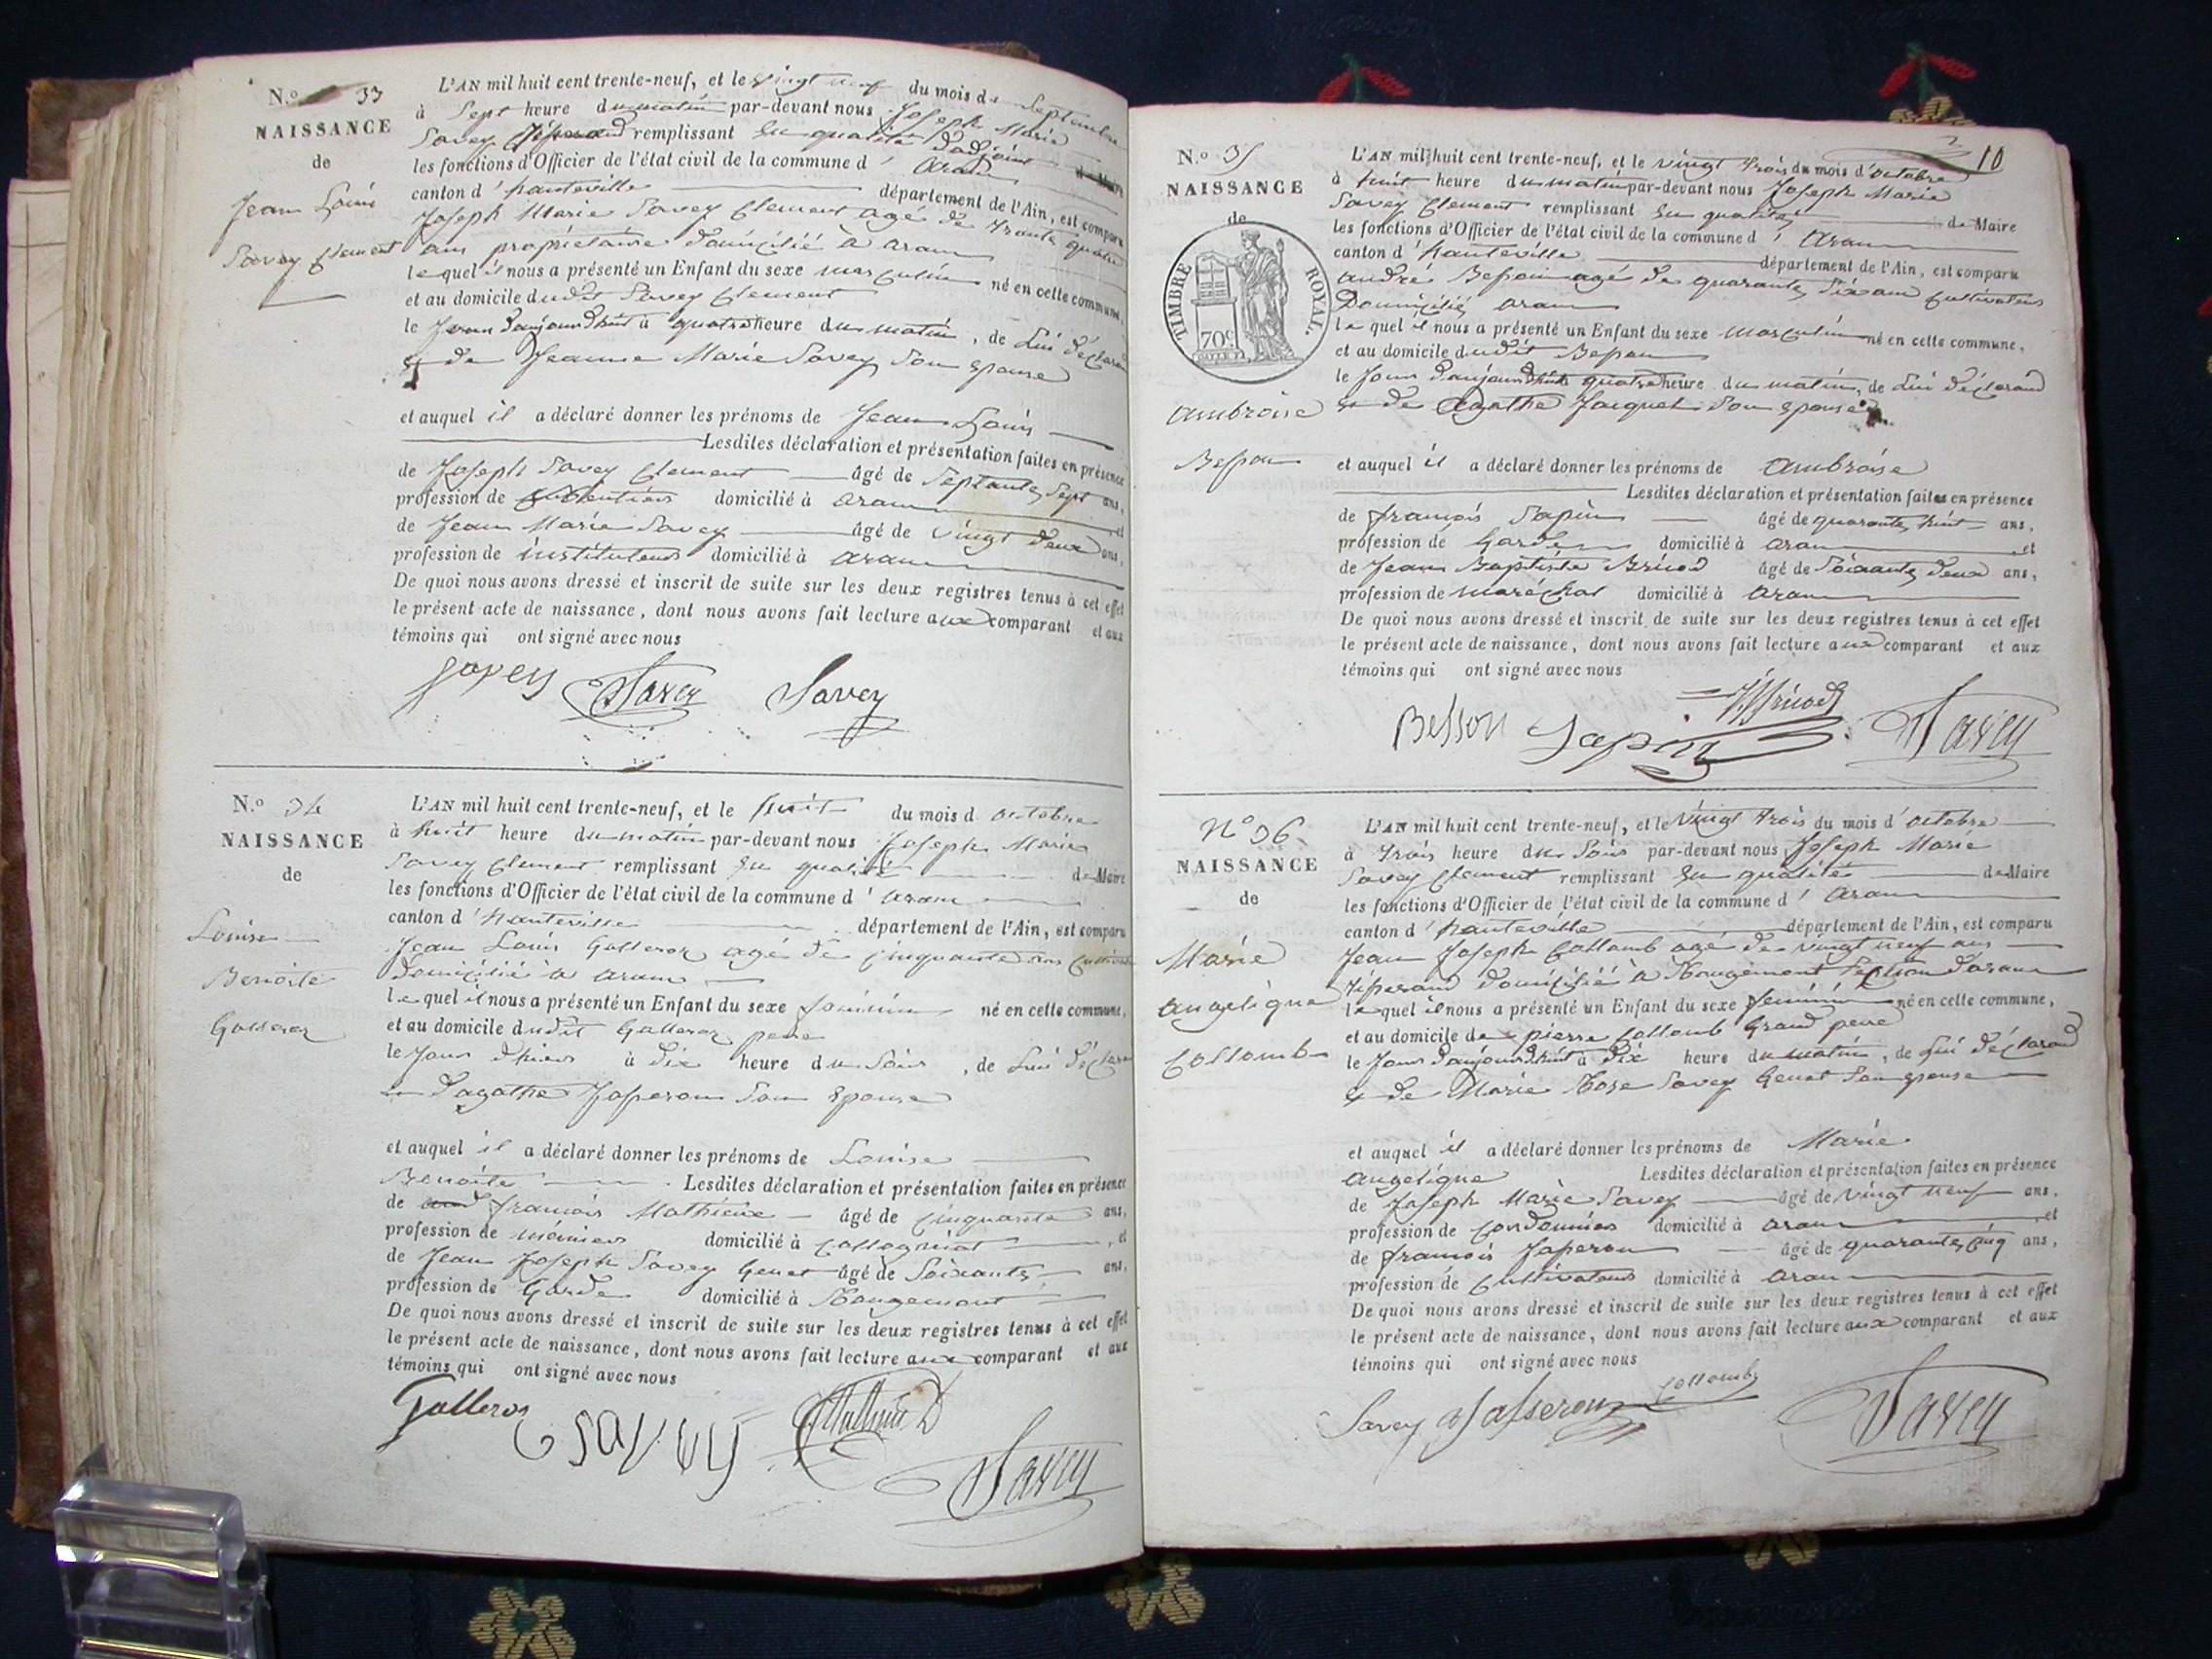 N.o 33
NAISSANCE
de
Jean Louis
Savey Clement
L'AN mil huit cent trente-neuf, et le vingt neuf du mois de Septembre
à Sept heure du matin par-devant nous Joseph Marie
Savey remplissant en qualité d'adjoint de Maire
les fonctions d'Officier de l'état civil de la commune d' aran
canton d' hauteville département de l'Ain, est comparu
Joseph Marie Savey Clement agé de trante quatre
ans propriétaire domicilié à aran
lequel il nous a présenté un Enfant du sexe masculin né en cette commune,
et au domicile dudit Savey Clement
le Jour d'aujourdhuit à quatre heure du matin, de Lui déclarand
& de Jeanne Marie Savey Son epouse
et auquel il a déclaré donner les prénoms de Jean Louis
Lesdites déclaration et présentation faites en présence
de Joseph Savey Clement âgé de Septante Sept ans,
profession de domicilié à aran et
de Jean Marie Savey âgé de vingt deux ans,
profession de instituteur domicilié à aran
De quoi nous avons dressé et inscrit de suite sur les deux registres tenus à cet effet
le présent acte de naissance, dont nous avons fait lecture aux comparant et aux
témoins qui ont signé avec nous
Savey Savey Savey
N.o 34
NAISSANCE
de
Louise
Benoite
Galleron
L'AN mil huit cent trente-neuf, et le huit du mois d octobre
à huit heure du matin par-devant nous Joseph Marie
Savey Clement remplissant en qualité de Maire
les fonctions d'Officier de l'état civil de la commune d' aran
canton d' hauteville département de l'Ain, est comparu
Jean Louis agé de cinquante ans cultivateur
domicilié à aran
lequel il nous a présenté un Enfant du sexe feminin né en cette commune,
et au domicile dudit pere
le Jour d'hier à dix heure du Soir, de Lui déclarand
d'agathe Jasseron Son epouse
et auquel il a déclaré donner les prénoms de Louise
Benoite Lesdites déclaration et présentation faites en présence
de francois Mathieu âgé de cinquante ans,
profession de domicilié à, et
de Jean Joseph Savey Genet âgé de Soixante ans,
profession de Garde domicilié à Rougemont
De quoi nous avons dressé et inscrit de suite sur les deux registres tenus à cet effet
le présent acte de naissance, dont nous avons fait lecture aux comparant et aux
témoins qui ont signé avec nous
Savey
10
N.o 35
NAISSANCE
de
TIMBRE ROYAL.
70c
ambroise
Besson
L'AN mil huit cent trente-neuf, et le vingt trois du mois d'octobre
à huit heure du matin par-devant nous Joseph Marie
Savey Clement remplissant en qualité de Maire
les fonctions d'Officier de l'état civil de la commune d' aran
canton d' hauteville département de l'Ain, est comparu
andré Besson agé de quarante Six ans cultivateur
Domicilié aran
lequel il nous a présenté un Enfant du sexe masculin né en cette commune,
et au domicile dudit Besson
le Jour d'aujourdhuit quatre heure du matin, de Lui déclarand
& de agathe Jacquet Son epouse
et auquel il a déclaré donner les prénoms de ambroise
Lesdites déclaration et présentation faites en présence
de francois Sapin âgé de quarante huit ans,
profession de Garde domicilié à aran et
de Jean Baptiste Brucod âgé de Soixante deux ans,
profession de maréchal domicilié à aran
De quoi nous avons dressé et inscrit de suite sur les deux registres tenus à cet effet
le présent acte de naissance, dont nous avons fait lecture aux comparant et aux
témoins qui ont signé avec nous
Besson Sapin Savey
N° 36
NAISSANCE
de
Marie
angelique
Collomb
L'AN mil huit cent trente-neuf, et le vingt trois du mois d' octobre
à trois heure du Soir par-devant nous Joseph Marie
Savey Clement remplissant en qualité de Maire
les fonctions d'Officier de l'état civil de la commune d' aran
canton d' hauteville département de l'Ain, est comparu
Jean Joseph Collomb agé de vingt neuf ans
tisserand domicilié à Rougemont Section d'aran
lequel il nous a présenté un Enfant du sexe feminin né en cette commune,
et au domicile de pierre Collomb Grand pere
le Jour d'aujourdhuit à dix heure du matin, de Lui déclarand
& de Marie Rose Savey Genet Son epouse
et auquel il a déclaré donner les prénoms de Marie
angelique Lesdites déclaration et présentation faites en présence
de Joseph Marie Savey âgé de vingt neuf ans.
profession de cordonnier domicilié à aran et
de francois Jasseron âgé de quarante cinq ans,
profession de cultivateur domicilié à aran
De quoi nous avons dressé et inscrit de suite sur les deux registres tenus à cet effet
le présent acte de naissance, dont nous avons fait lecture aux comparant et aux
témoins qui ont signé avec nous
Savey Jasseron Collomb Savey